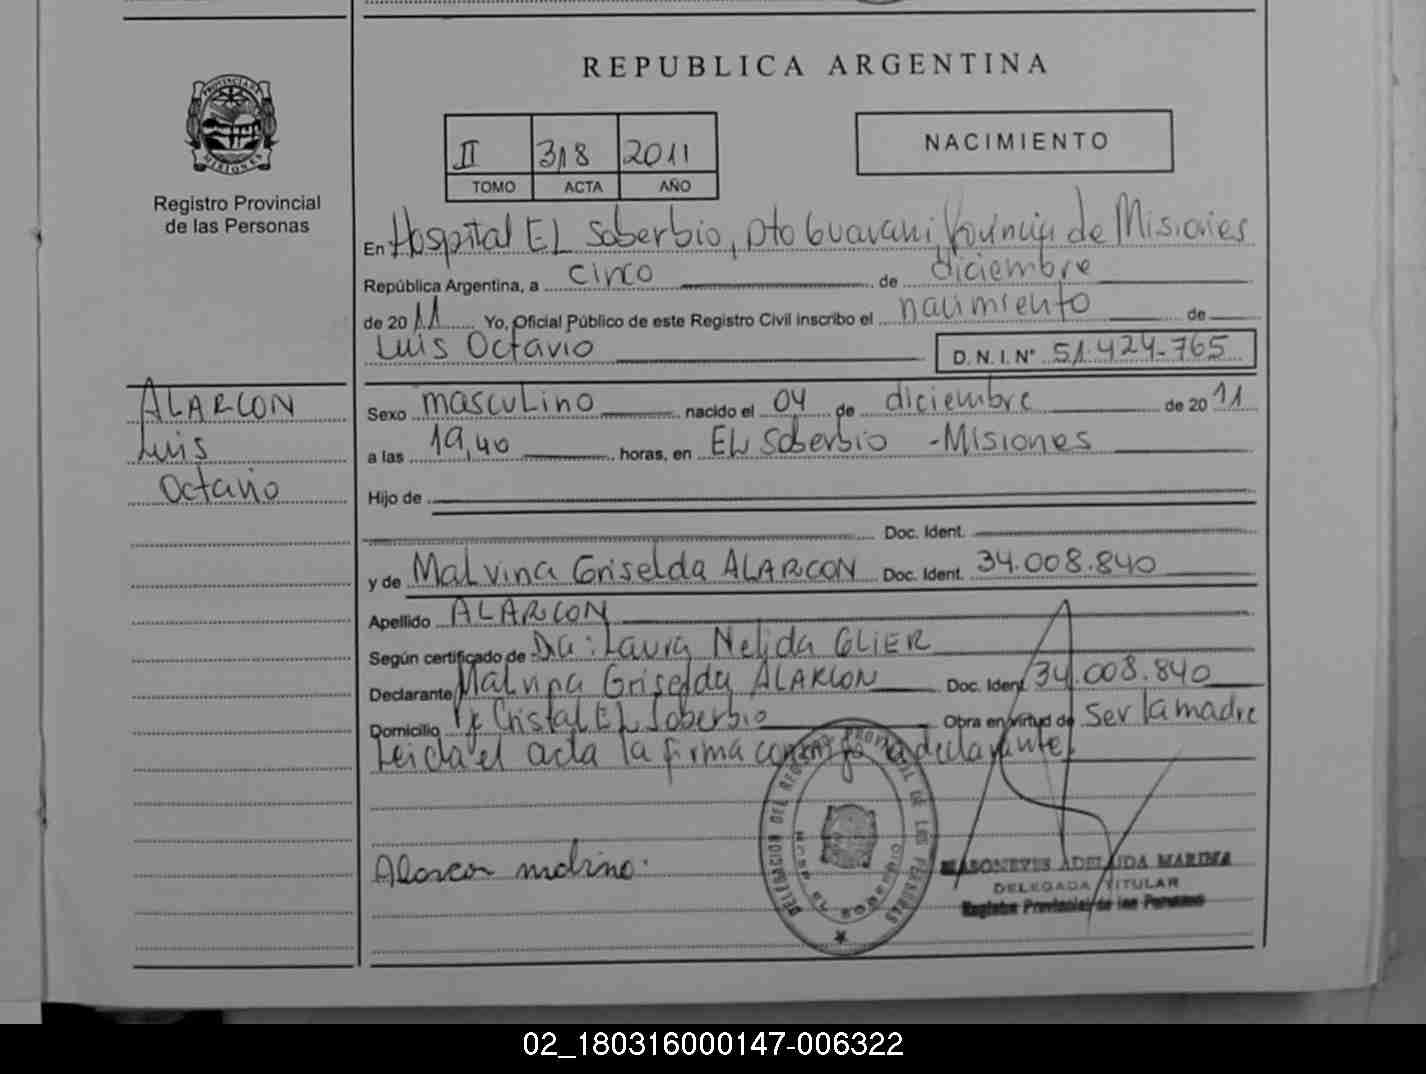 REPUBLICA ARGENTINA
II 318 2011
TOMO ACTA AÑO
NACIMIENTO
PROVINCIA DE MISIONES
Registro Provincial
de las Personas
En Hospital EL Soberbio, Dto Guarani, Provincia de Misiones
República Argentina, a cinco de diciembre
de 2011 Yo, Oficial Público de este Registro Civil inscribo el nacimiento de
Luis Octavio D.N.I. Nº 51.424.765
ALARCON
Luis
Octavio
Sexo masculino nacido el 04 de diciembre de 2011
a las 19,40 horas, en EL Soberbio - Misiones
Hijo de
Doc. Ident.
y de Malvina Griselda ALARCON Doc. Ident. 34.008.840
Apellido ALARCON
Según certificado de Dra: Laura Nelida GLIER
Declarante Malvina Griselda ALARCON Doc. Ident. 34.008.840
Domicilio Cristal EL Soberbio Obra en virtud de ser la madre
Leida el acta la firma conmigo la declarante.
Alarcon malvina.
DELEGACION DEL REGISTRO PROVINCIAL DE LAS PERSONAS
HOSP. EL SOBERBIO
ADELAIDA MARINA
DELEGADA TITULAR
Registro Provincial de las Personas
02_180316000147-006322